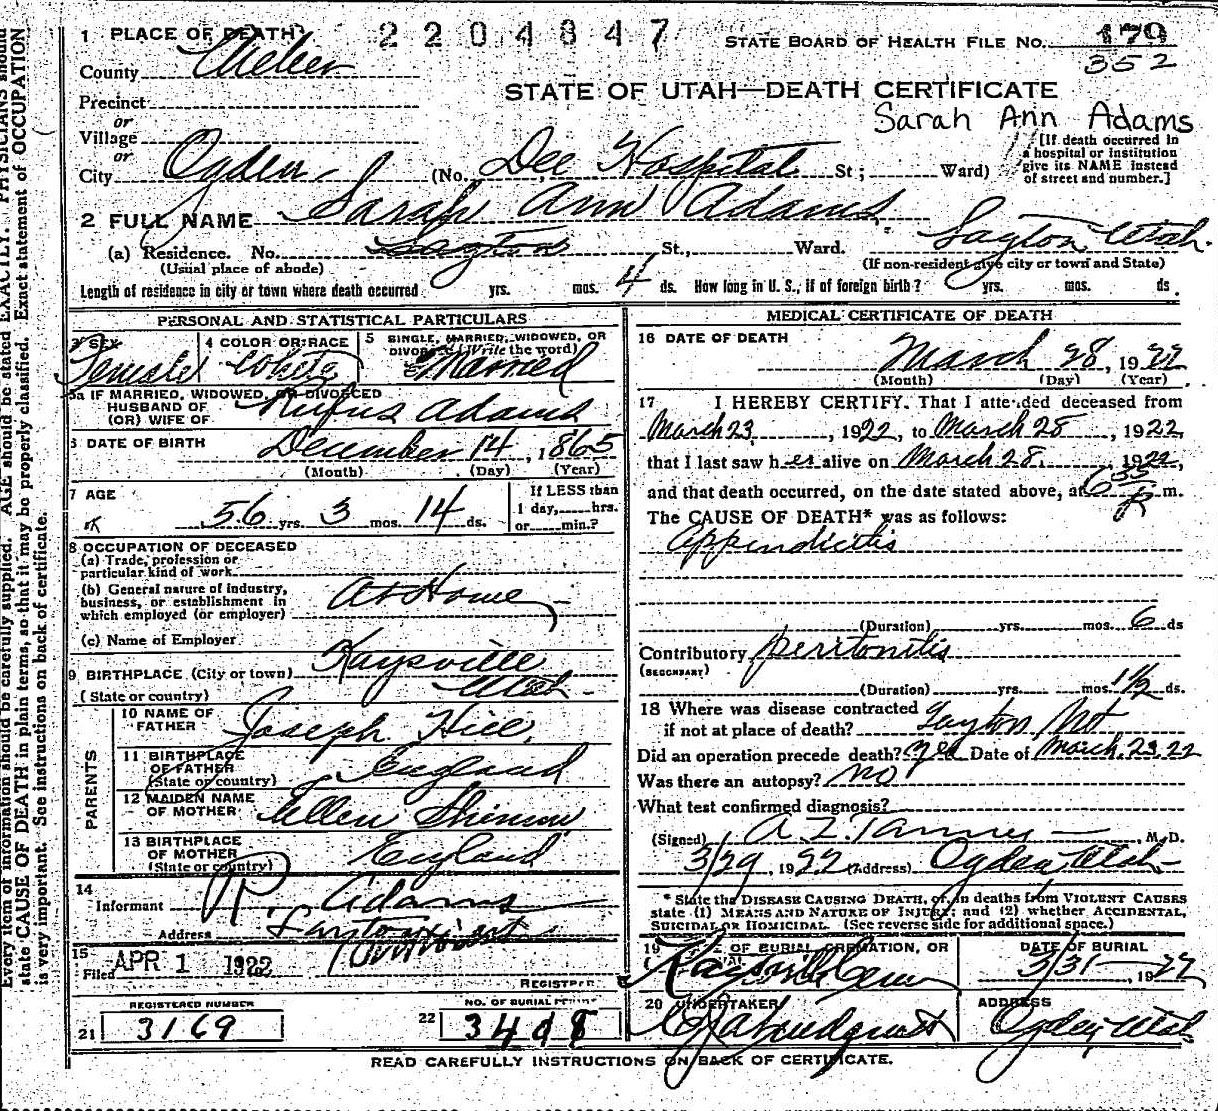 1 PLACE OF DEATH 2204847 STATE BOARD OF HEALTH FILE No. 179
County Weber 352
Precinct STATE OF UTAH—DEATH CERTIFICATE
or Sarah Ann Adams
Village
or
City Ogden (No. Dee Hospital St; Ward)
[If death occurred in
a hospital or institution
give its NAME instead
of street and number.]
2 FULL NAME Sarah Ann Adams
(a) Residence. No. Layton St., Ward. Layton Utah.
(Usual place of abode) (If non-resident give city or town and State)
Length of residence in city or town where death occurred yrs. mos. 4 ds. How long in U. S., if of foreign birth? yrs. mos. ds.
PERSONAL AND STATISTICAL PARTICULARS
3 SEX
Female
4 COLOR OR RACE
White
5 SINGLE, MARRIED, WIDOWED, OR
DIVORCED (Write the word)
Married
5a IF MARRIED, WIDOWED, OR DIVORCED
HUSBAND OF
(OR) WIFE OF Rufus Adams
6 DATE OF BIRTH December 14, 1865
(Month) (Day) (Year)
7 AGE
56 yrs. 3 mos. 14 ds.
If LESS than
1 day, hrs.
or min.?
8 OCCUPATION OF DECEASED
(a) Trade, profession or
particular kind of work
(b) General nature of industry,
business, or establishment in
which employed (or employer) At Home
(c) Name of Employer
9 BIRTHPLACE (City or town) Kaysville
(State or country) Utah
PARENTS
10 NAME OF
FATHER Joseph Hill
11 BIRTHPLACE
OF FATHER
(State or country) England
12 MAIDEN NAME
OF MOTHER Ellen
13 BIRTHPLACE
OF MOTHER
(State or country) England
14
Informant R. Adams
Address Layton
15
Filed APR 1 1922
REGISTRAR
REGISTERED NUMBER
21 3169
NO. OF BURIAL PERMIT
22 3408
MEDICAL CERTIFICATE OF DEATH
16 DATE OF DEATH
March 28, 1922
(Month) (Day) (Year)
17 I HEREBY CERTIFY, That I attended deceased from
March 23, 1922, to March 28, 1922,
that I last saw her alive on March 28, 1922,
and that death occurred, on the date stated above, at 6 35 P m.
The CAUSE OF DEATH* was as follows:
Appendicitis
(Duration) yrs. mos. 6 ds
Contributory peritonitis
(SECONDARY)
(Duration) yrs. mos. 1½ ds.
18 Where was disease contracted
if not at place of death? Layton
Did an operation precede death? yes Date of March 23, 22
Was there an autopsy? no
What test confirmed diagnosis?
(Signed) A Z Tanner, M. D.
3/29, 1922 (Address) Ogden Utah
* State the DISEASE CAUSING DEATH, or, in deaths from VIOLENT CAUSES
state (1) MEANS AND NATURE OF INJURY; and (2) whether ACCIDENTAL,
SUICIDAL OR HOMICIDAL. (See reverse side for additional space.)
19 OF BURIAL, CREMATION, OR
Kaysville Cem
DATE OF BURIAL
3/31 1922
20 UNDERTAKER
ADDRESS
Ogden, Utah
READ CAREFULLY INSTRUCTIONS ON BACK OF CERTIFICATE.
Every item of information should be carefully supplied. AGE should be stated EXACTLY. PHYSICIANS should
state CAUSE OF DEATH in plain terms, so that it may be properly classified. Exact statement of OCCUPATION
is very important. See instructions on back of certificate.